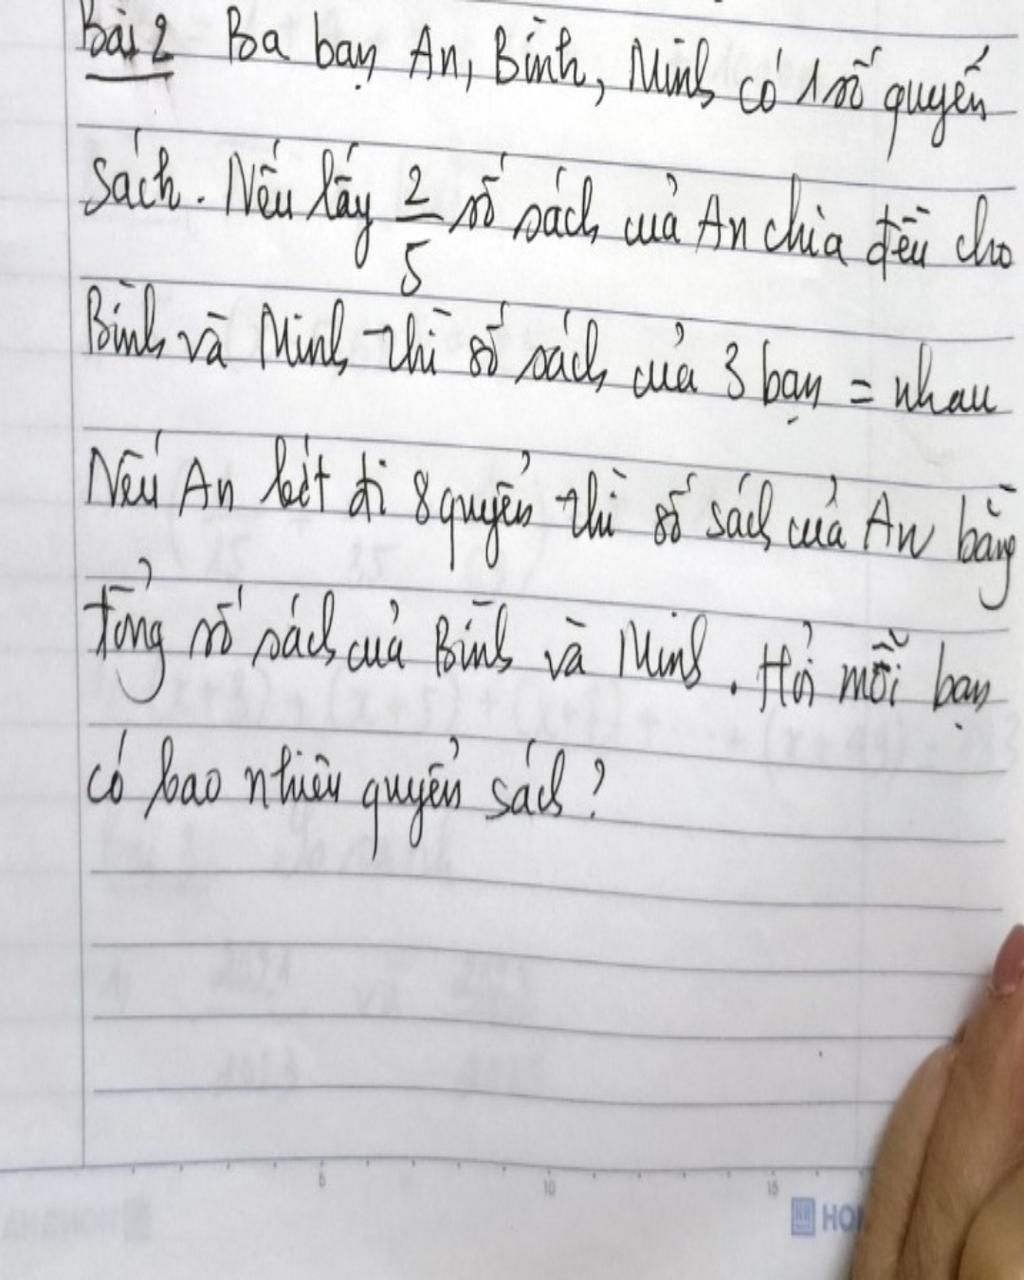 Bài 2 Ba bạn An, Bình, Minh có 1 số quyển
sách. Nếu lấy 2/5 số sách của An chia đều cho
Bình và Minh thì số sách của 3 bạn = nhau
Nếu An bớt đi 8 quyển thì số sách của An bằng
tổng số sách của Bình và Minh. Hỏi mỗi bạn
có bao nhiêu quyển sách?
5 10 15
HON